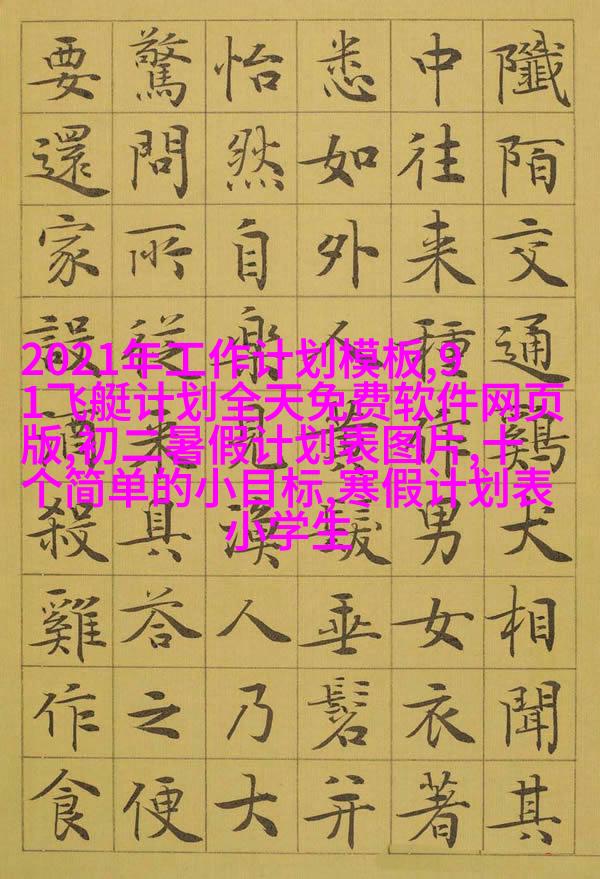 陌交通鷄犬相聞其
中往来種作男女衣著
悉如外人黄髮垂髫并
怡然自樂見漁人乃大
驚問所從来具答之便
要還家設酒殺雞作食
2021年工作计划模板,9
1飞艇计划全天免费软件网页
版,初二暑假计划表图片,十
个简单的小目标,寒假计划表
小学生